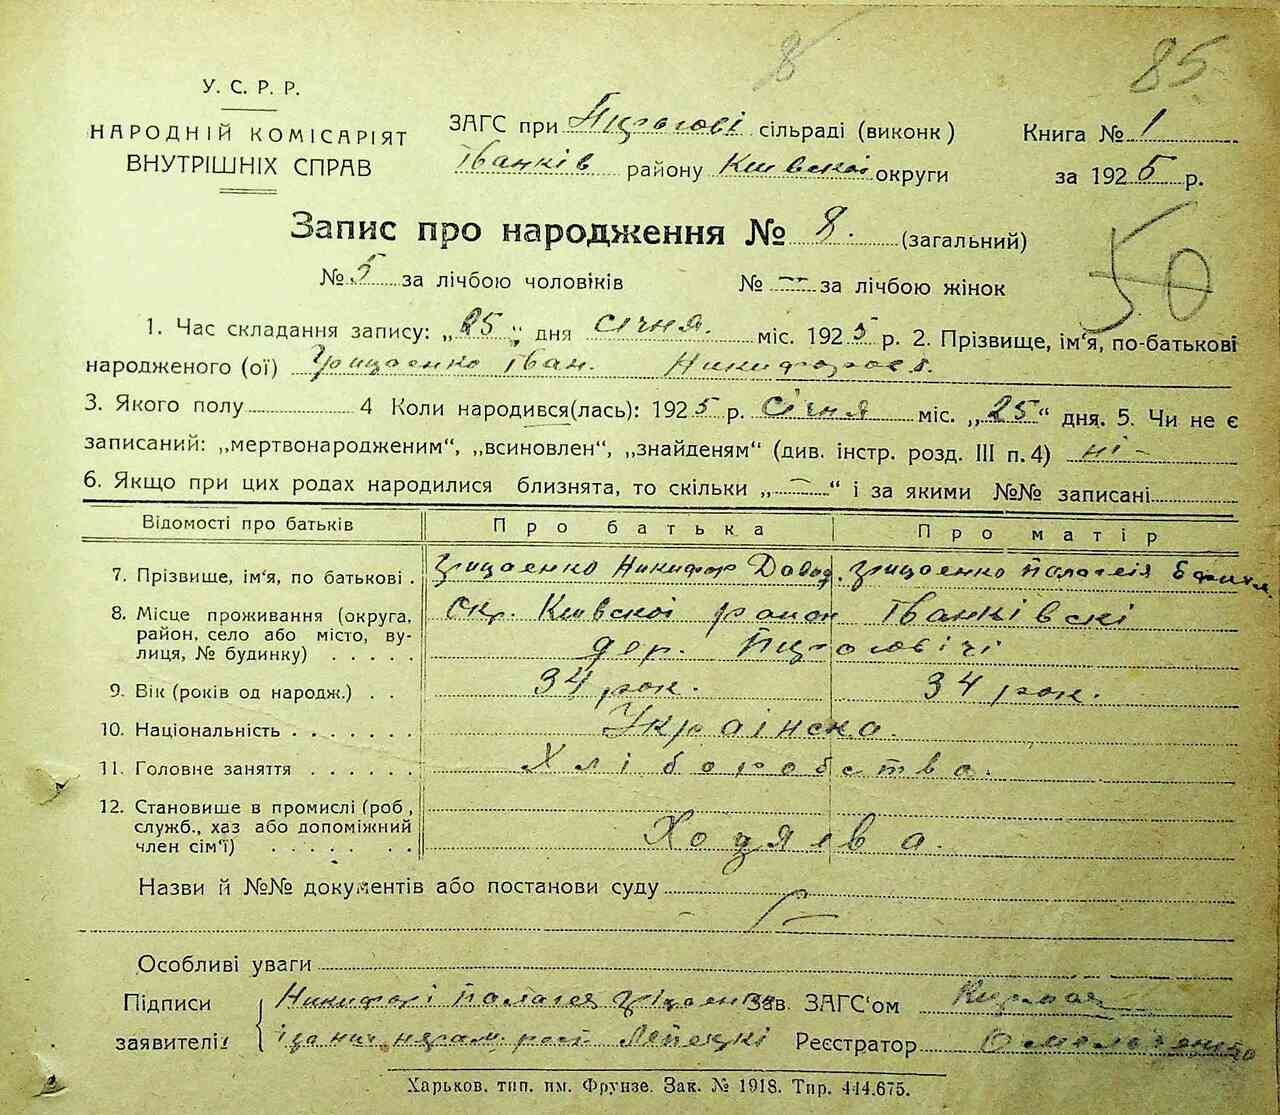 8 85
У. С. Р. Р.
НАРОДНІЙ КОМІСАРІЯТ
ВНУТРІШНІХ СПРАВ
ЗАГС при сільраді (виконк)
Іванків району Киівскоі округи
Книга № 1
за 1925 р.
Запис про народження № 8. (загальний)
50
№ 5 за лічбою чоловіків № — за лічбою жінок
1. Час складання запису: „25„ дня січня. міс. 1925 р. 2. Прізвище, ім'я, по-батькові
народженого (ої) Грищенко Іван. Никифоров.
3. Якого полу 4 Коли народився(лась): 1925 р. січня міс. „25“ дня. 5. Чи не є
записаний: „мертвонародженим“, „всиновлен“, „знайденям“ (див. інстр. розд. III п. 4) ні -
6. Якщо при цих родах народилися близнята, то скільки „—“ і за якими №№ записані
Відомості про батьків Про батька Про матір
7. Прізвище, ім'я, по батькові . Грищенко Никифор Грищенко Палагея
8. Місце проживання (округа, Окр. Киівскоі район Іванківскі
район, село або місто, ву-
лиця, № будинку) . . . . . дер.
9. Вік (років од народж.) . . 34 рок. 34 рок.
10. Національність . . . . . . . Украінска.
11. Головне заняття . . . . . . Хліборобство.
12. Становише в промислі (роб.,
служб., хаз або допоміжний Хозяева.
член сім'ї) . . . . . . .
Назви й №№ документів або постанови суду
—
Особливі уваги
Підписи Никифор і Палагея Зав. ЗАГС'ом
заявителів Реєстратор
Харьков. тип. им. Фрунзе. Зак. № 1918. Тир. 444.675.